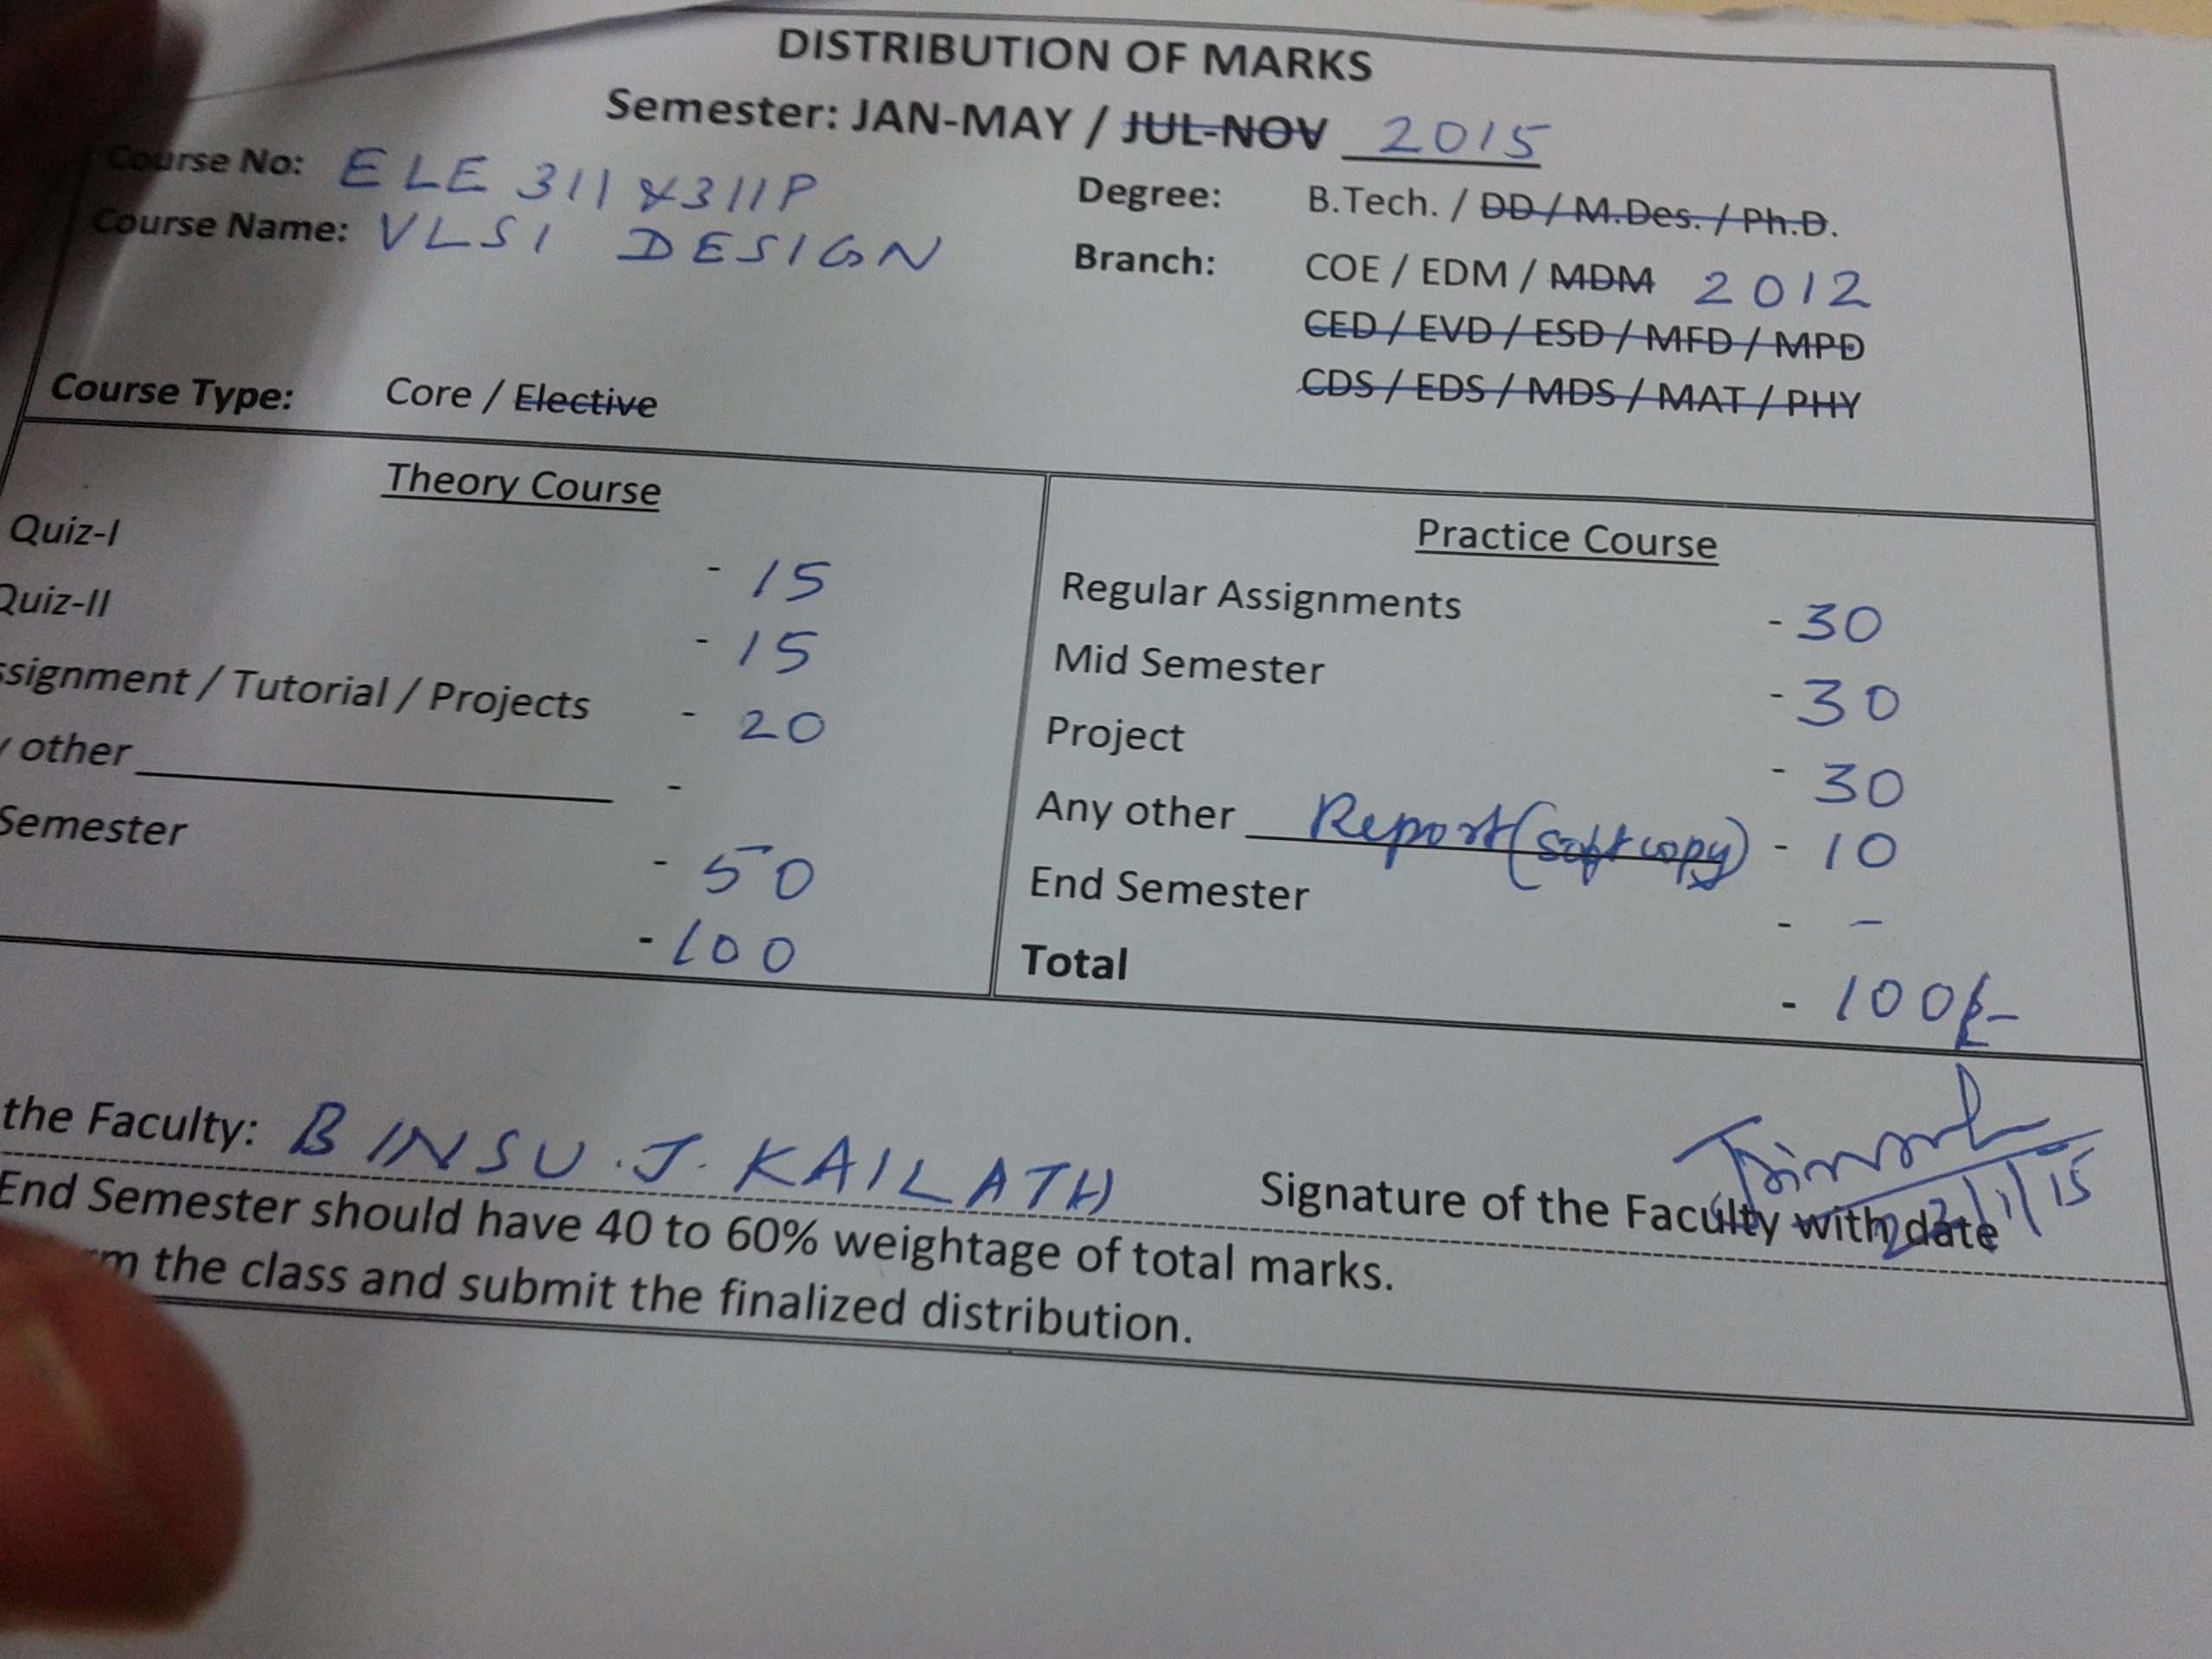 DISTRIBUTION OF MARKS
Semester: JAN-MAY / JUL-NOV 2015
Course No: ELE 311 & 311P
Degree: B.Tech. / DD / M.Des. / Ph.D.
Course Name: VLSI DESIGN
Branch: COE / EDM / MDM 2012
CED / EVD / ESD / MFD / MPD
CDS / EDS / MDS / MAT / PHY
Course Type: Core / Elective
Theory Course
Quiz-I - 15
Quiz-II - 15
ssignment / Tutorial / Projects - 20
other -
Semester - 50
- 100
Practice Course
Regular Assignments - 30
Mid Semester - 30
Project - 30
Any other Report (soft copy) - 10
End Semester - -
Total - 100/-
the Faculty: BINSU. J. KAILATH
Signature of the Faculty with date /1/15
End Semester should have 40 to 60% weightage of total marks.
m the class and submit the finalized distribution.